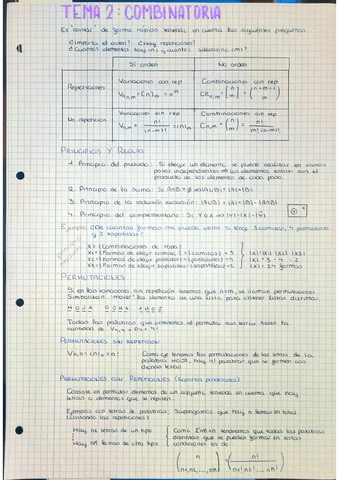 TEMA 2: COMBINATORIA
Es "contar" de forma rápida teniendo en cuenta las siguientes preguntas
¿Importa el orden? ¿Hay repeticiones?
¿Cuántos elementos hay (n) y cuántos selecciono (m)?
Sí orden No orden
Variaciones con rep Combinaciones con rep
Repeticiones VRn,m = [n]m = n^m CRn,m = [n m] = (n+m-1 m)
Variaciones sin rep Combinaciones sin rep
No repetición Vn,m = n!/(n-m)! = (n)m Cn,m = (n m) = n!/m!(n-m)!
PRINCIPIOS Y REGLAS
1. Principio del producto: Si elegir un elemento se puede realizar en varios
pasos independientes ⇒ Los elementos totales son el
producto de los elementos de cada paso
2. Principio de la suma: Si A∩B = ∅ ⇒ |A∪B| = |A|+|B|
3. Principio de la inclusión exclusión: |A∪B| = |A|+|B|-|A∩B|
4. Principio del complementario: Si Y ⊆ X ⇒ |Y| = |X|-|Ȳ|
Ejemplo ¿De cuántas formas me puedo vestir si tengo 3 camisas, 4 pantalones
y 2 zapatillas?
X = {Combinaciones de ropa}
X1 = {Formas de elegir camisa} = {camisas} = 3 |X| = |X1|·|X2|·|X3|
X2 = {Formas de elegir pantalón} = {pantalones} = 4 |X| = 3·4·2
X3 = {Formas de elegir zapatillas} = {zapatillas} = 2 |X| = 24 formas
PERMUTACIONES
Si en las variaciones sin repetición tenemos que n=m, se llaman permutaciones
Simbolizan "mover" los elementos de una lista para obtener listas distintas
HOJA OJHA AHOJ
Todas las palabras que podemos al permutar sus letras tienen la
cantidad de V4,4 = P4 = 4!
PERMUTACIONES SIN REPETICIÓN
Vn,n = (n)n = n! Como ej: tenemos las permutaciones de las letras de la
palabra HOJA, hay 4! palabras que se forman con
dichas letras
PERMUTACIONES CON REPETICIONES
Consiste en permutar elementos de un conjunto teniendo en cuenta que hay
letras o elementos que se repiten.
Ejemplos con letras de palabras: Supongamos que hay n letras en total
Hay n1 letras de un tipo Como Σni=n tendremos que todas las palabras
⋮ distintas que se pueden formar en estas
Hay nk letras de otro tipo condiciones es de
(n n1, n2, ..., nk) = (n! / n1! n2! ... nk!)